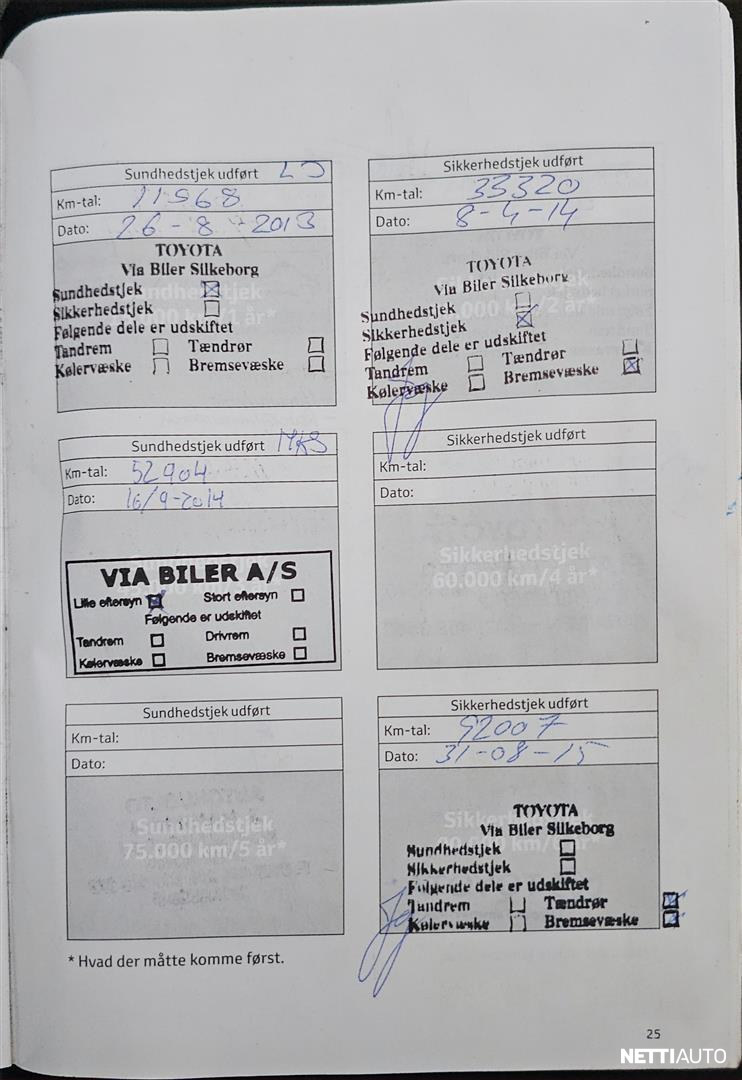 25
Sundhedstjek udført
Km-tal: 11968
Dato: 26-8-2013
TOYOTA
Via Biler Silkeborg
Sundhedstjek
Sikkerhedstjek
Følgende dele er udskiftet
Tandrem Tændrør
Kølervæske Bremsevæske
Sikkerhedstjek udført
Km-tal: 33320
Dato: 8-4-14
TOYOTA
Via Biler Silkeborg
Sundhedstjek
Sikkerhedstjek
Følgende dele er udskiftet
Tandrem Tændrør
Kølervæske Bremsevæske
Sundhedstjek udført MKS
Km-tal: 52904
Dato: 16/9-2014
VIA BILER A/S
Lille eftersyn Stort eftersyn
Følgende er udskiftet
Tandrem Drivrem
Kølervæske Bremsevæske
Sikkerhedstjek udført
Km-tal:
Dato:
Sikkerhedstjek
60.000 km/4 år*
Sundhedstjek udført
Km-tal:
Dato:
Sundhedstjek
75.000 km/5 år*
Sikkerhedstjek udført
Km-tal: 92007
Dato: 31-08-15
TOYOTA
Via Biler Silkeborg
Sundhedstjek
Sikkerhedstjek
Følgende dele er udskiftet
Tandrem Tændrør
Kølervæske Bremsevæske
* Hvad der måtte komme først.
25
NETTIAUTO